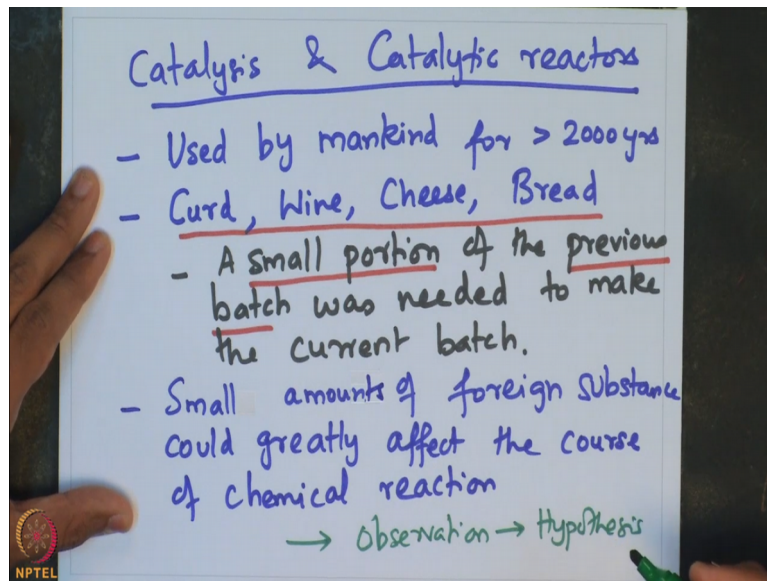 Catalysis & Catalytic reactors
- Used by mankind for > 2000 yrs
- Curd, Wine, Cheese, Bread
- A small portion of the previous
batch was needed to make
the current batch.
- Small amounts of foreign substance
could greatly affect the course
of chemical reaction
→ Observation → Hypothesis
NPTEL